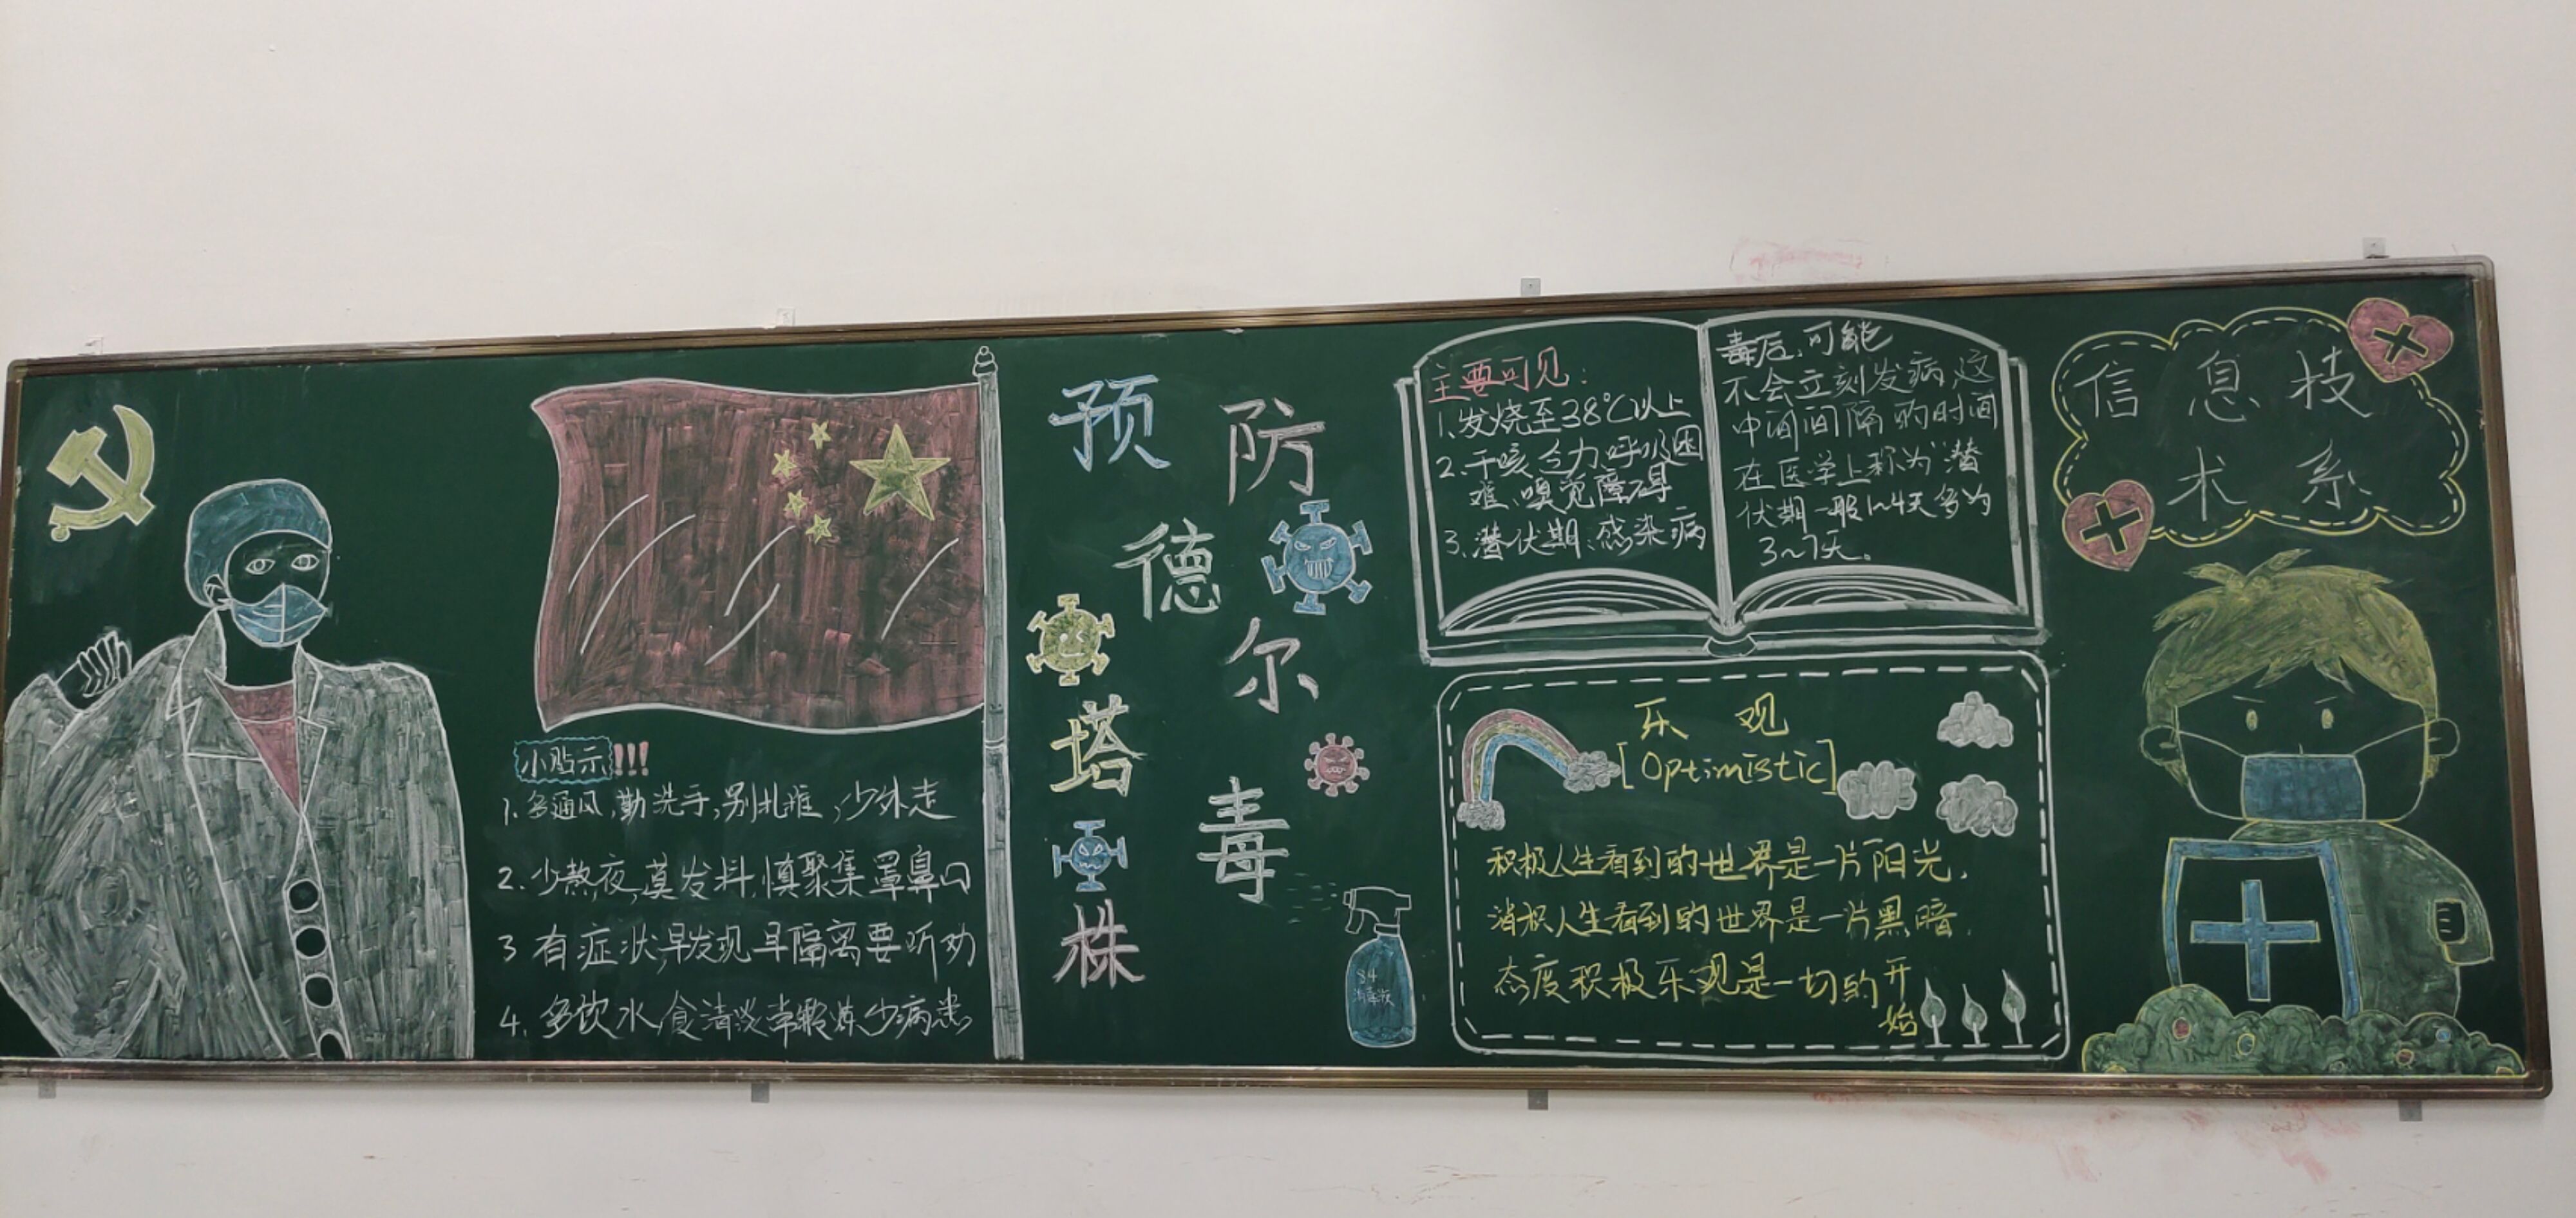 小贴示!!!
1.多通风,勤洗手,别扎堆,少外走
2.少熬夜,莫发抖,慎聚集罩鼻口
3 有症状,早发现早隔离要听劝
4.多饮水,食清淡常锻炼少病患
预防
德尔
塔毒
株
84
消毒液
主要可见:
1.发烧至38℃以上
2.干咳乏力.呼吸困
难、嗅觉障碍
3.潜伏期:感染病
毒后,可能
不会立刻发病,这
中间间隔的时间
在医学上称为"潜
伏期一般1~4天多为
3~7天。
乐观
[Optimistic]
积极人生看到的世界是一片阳光,
消积人生看到的世界是一片黑暗,
态度积极乐观是一切的开
始
信息技
术系